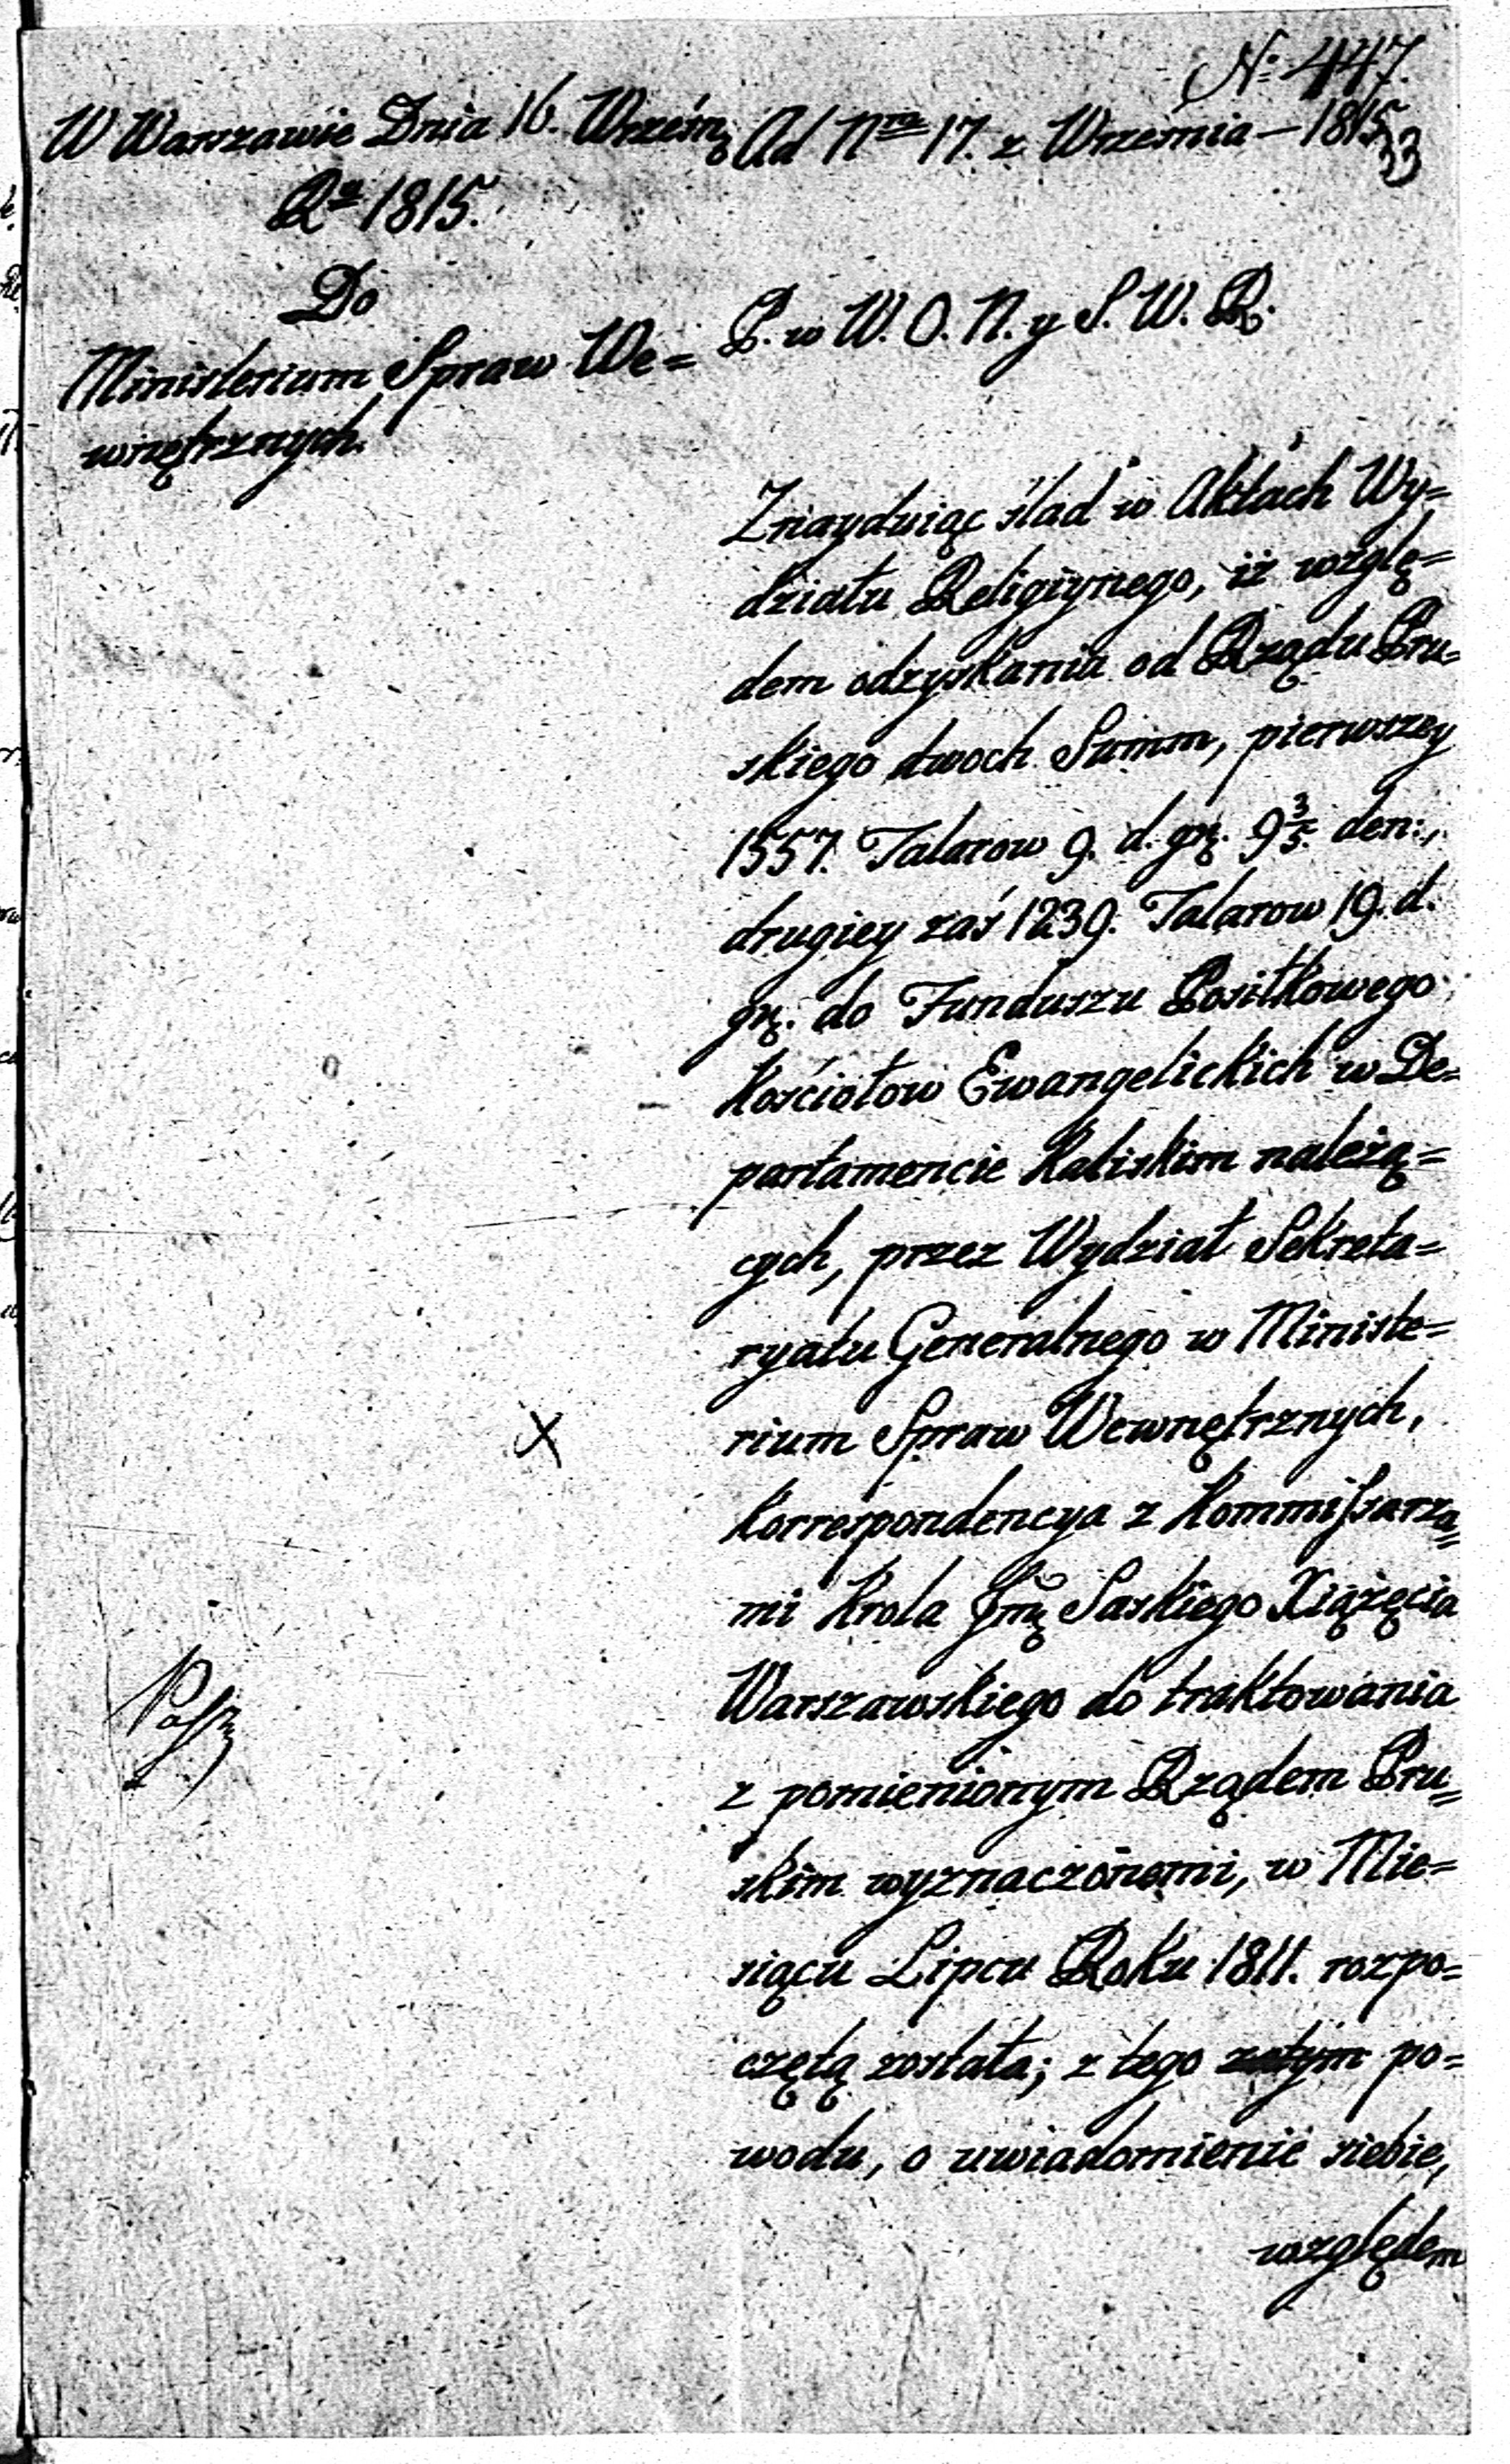 No. 447.
W Warszawie Dnia 16. Wrześn
Rs 1815.
Ad Nra 17. z Wrzesnia — 1815
33
Do
Ministerium Spraw We=
wnętrznych.
P. w W. O. N. y S. W. R.
Znaydviąc ślad w Aktach Wy=
działu Religiynego, iż wzglę=
dem odzyskania od Rządu Pru=
skiego dwoch Summ, pierwszey
1557. Talarow 9. d. grę. 9 3/5. den:,
drugiey zaś 1239. Talarow 19. d.
grę. do Funduszu Posiłkowego
Kościołow Ewangelickich w De=
partamencie Kaliskim należą=
cych, przez Wydział Sekreta=
ryatu Generalnego w Ministe=
rium Spraw Wewnętrznych,
Korrespondencya z Kommissarza=
mi Krola Jmę Saskiego Xiążęcia
Warszawskiego do traktowania
z pomienionym Rządem Pru=
skim wyznaczonemi, w Mie=
siącu Lipcu Roku 1811. rozpo=
czętą została; z tego po=
wodu, o uwiadomienie siebie,
względem